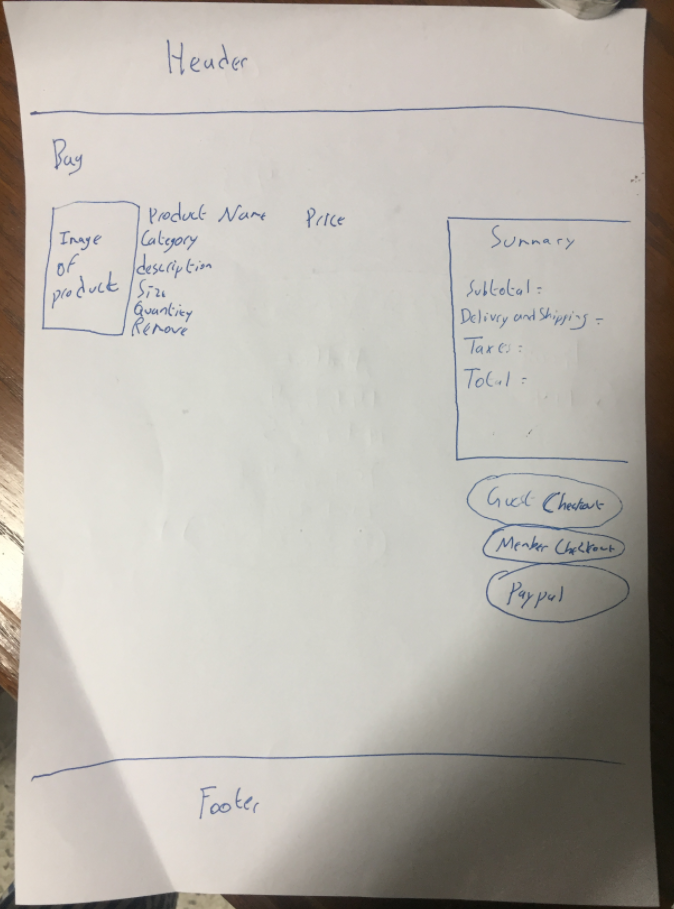 Header
Bag
Image
of
product
Product Name
Price
Category
description
Size
Quantity
Remove
Summary
Subtotal :
Delivery and Shipping :
Taxes :
Total :
Guest Checkout
Member Checkout
Paypal
Footer